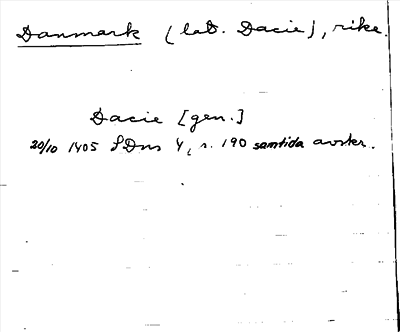 Danmark (lat. Dacie), rike.
Dacie [gen.]
20/10 1405 SDns 1, s. 190 samtida avskr.